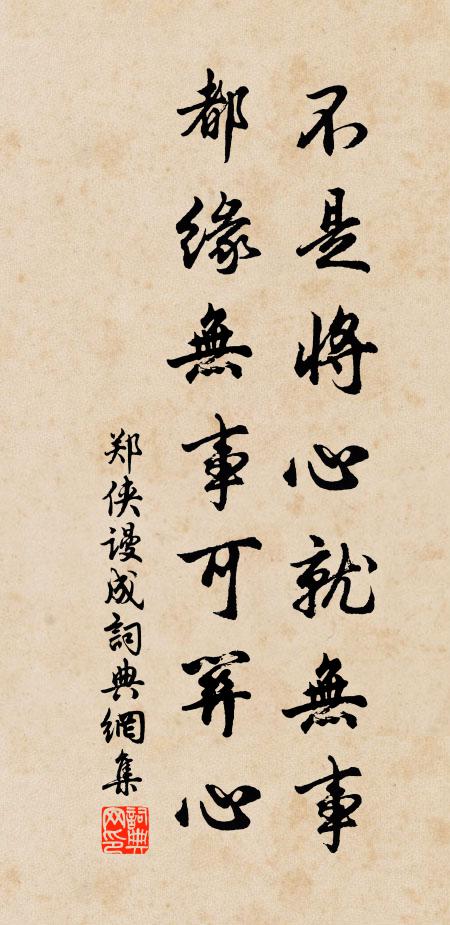 不是將心就無事
都緣無事可筭心
郑侠谩成詞典網集
詞典網印